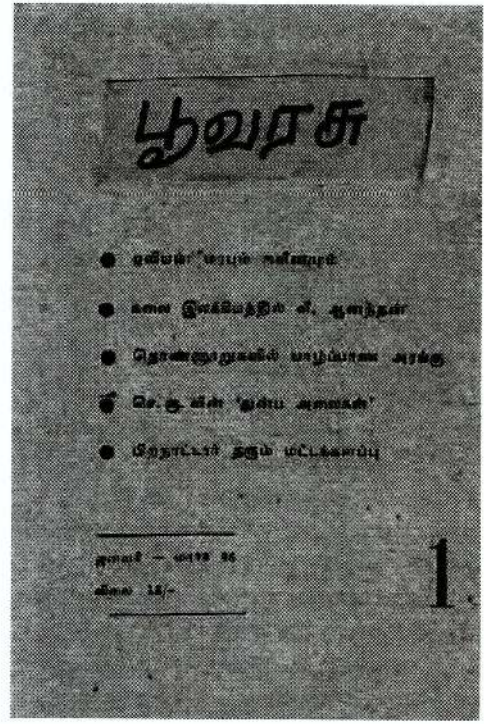 பூவரசு
ஓவியம்: மரபும் நவீனமும்
கலை இலக்கியத்தில் வீ. ஆனந்தன்
தொண்ணூறுகளில் யாழ்ப்பாண அரங்கு
செ. கு. வின் 'துன்ப அலைகள்'
பிறநாட்டார் தரும் மட்டக்களப்பு
ஜனவரி - மார்ச் 96
விலை 15/-
1